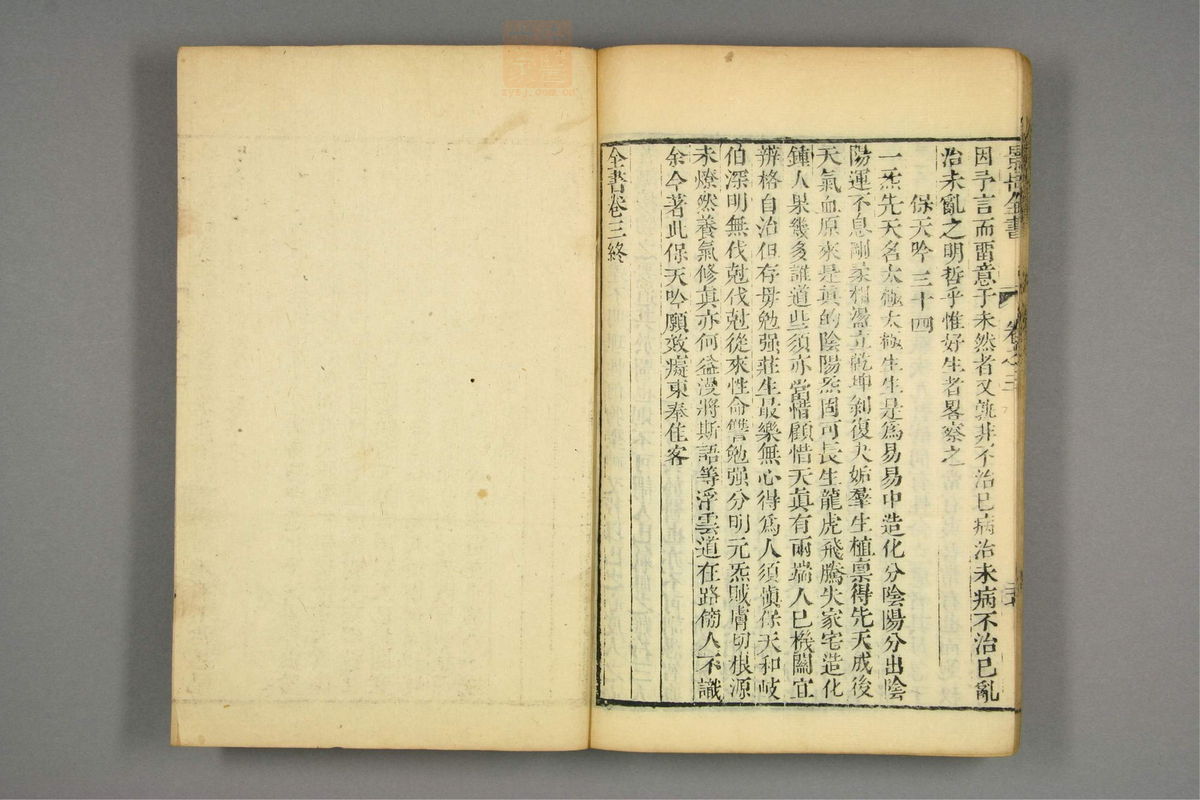 景岳全書 卷之三
因予言而留意于未然者又孰非不治已病治未病不治已亂
治未亂之明哲乎惟好生者畧察之
保天吟三十四
一炁先天名太極太極生生是爲易易中造化分陰陽分出陰
陽運不息剛柔相盪立乾坤剝復夬姤羣生植禀得先天成後
天氣血原來是眞的陰陽炁固可長生龍虎飛騰失家宅造化
鍾人果幾多誰道些須亦當惜顧惜天眞有兩端人已機關宜
辨格自治但存毋勉强莊生最樂無心得爲人須愼保天和岐
伯深明無伐尅伐尅從來性命讐勉强分明元炁賊膚切根源
未燎然養氣修眞亦何益漫將斯語等浮雲道在路傍人不識
余今著此保天吟願效癡東奉佳客
全書卷三終
zysj.com.cn